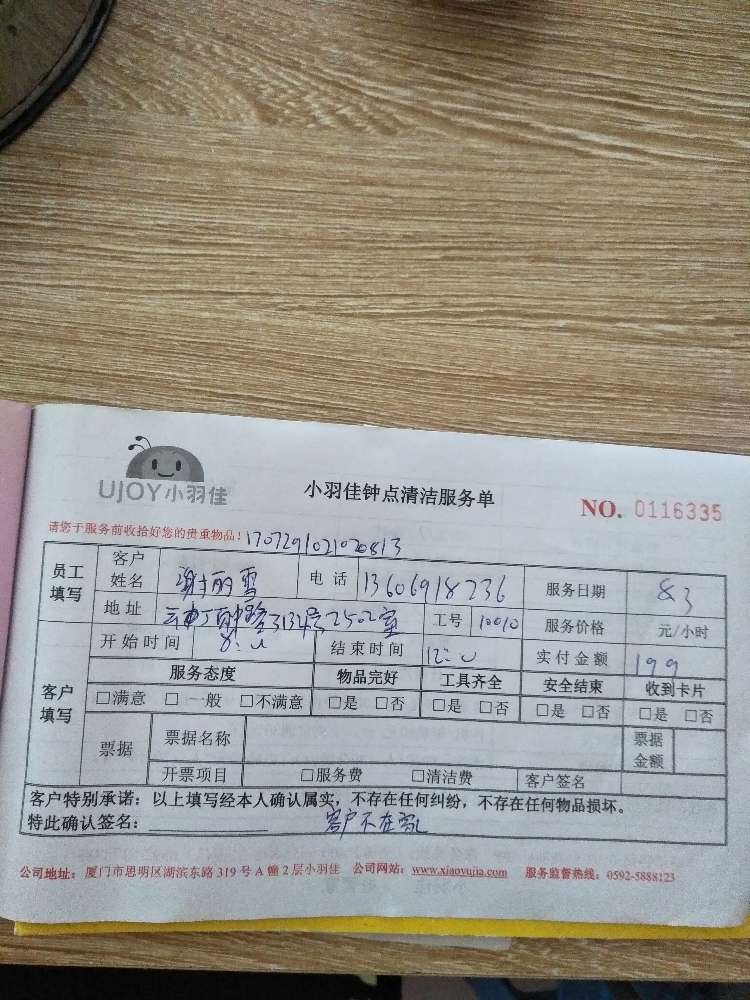 UJOY小羽佳
小羽佳钟点清洁服务单
NO. 0116335
请您于服务前收拾好您的贵重物品!
1707291021020813
员工填写 客户姓名 谢丽雪 电话 13606918236 服务日期 8.3
地址 312号2502室 工号 10010 服务价格 元/小时
客户填写 开始时间 8: 结束时间 12: 实付金额 199
服务态度 物品完好 工具齐全 安全结束 收到卡片
□满意 □一般 □不满意 □是 □否 □是 □否 □是 □否 □是 □否
票据 票据名称 票据金额
开票项目 □服务费 □清洁费 客户签名
客户特别承诺:以上填写经本人确认属实,不存在任何纠纷,不存在任何物品损坏。
特此确认签名: 客户不在家
公司地址:厦门市思明区湖滨东路319号A幢2层小羽佳 公司网站:www.xiaoyujia.com 服务监督热线:0592-5888123